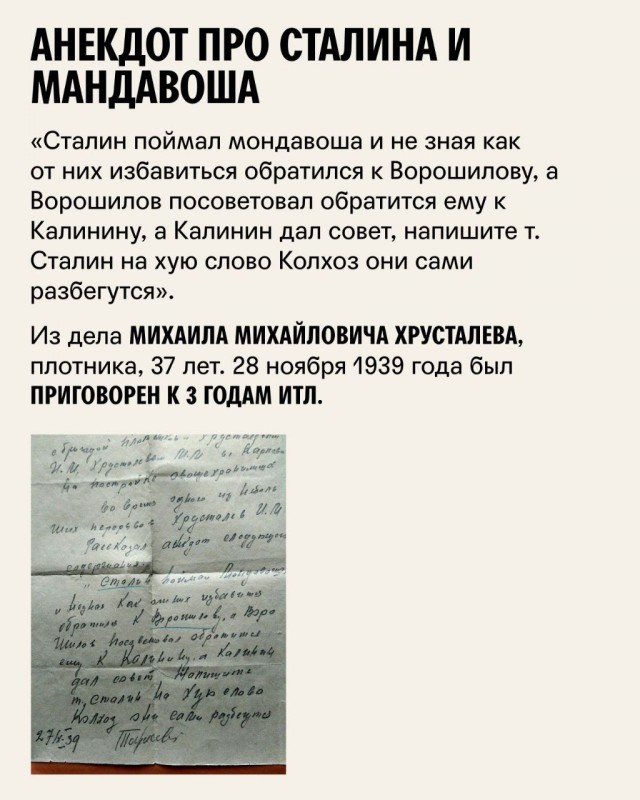 АНЕКДОТ ПРО СТАЛИНА И
МАНДАВОША
«Сталин поймал мондавоша и не зная как
от них избавиться обратился к Ворошилову, а
Ворошилов посоветовал обратится ему к
Калинину, а Калинин дал совет, напишите т.
Сталин на хую слово Колхоз они сами
разбегутся».
Из дела МИХАИЛА МИХАЙЛОВИЧА ХРУСТАЛЕВА,
плотника, 37 лет. 28 ноября 1939 года был
ПРИГОВОРЕН К 3 ГОДАМ ИТЛ.
Хрусталев
на постройке овощехранилища
во время одного из
Хрусталев
Рассказал следующего
содержания
„Сталин поймал
и не зная как избавится
обратился к Ворошилову, а Воро
шилов обратится
ему к Калинину, а Калинин
дал совет Напишите
т. Сталин на хую слово
Колхоз они сами разбегутся